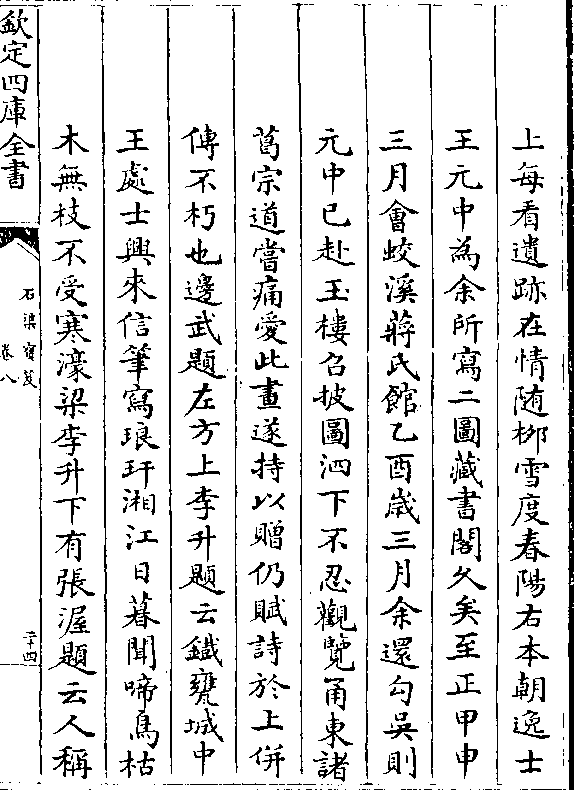 上每看遺跡在情随栁雪度春陽右本朝逸士
王元中為余所寫二圖藏書閣久矣至正甲申
三月會蛟溪蔣氏館乙酉嵗三月余還勾吳則
元中已赴玉樓召披圖泗下不忍觀覽甬東諸
葛宗道嘗痛愛此畫遂持以贈仍賦詩於上併
傳不朽也邊武題左方上李升題云鐡甕城中
王處士興來信筆寫琅玕湘江日暮聞啼鳥枯
木無枝不受寒濠梁李升下有張渥題云人稱
欽定四庫全書
石渠寳笈
卷八
二十四